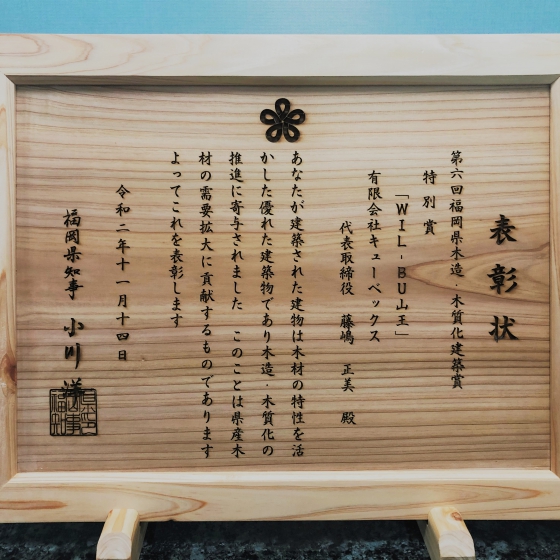 表彰状
第六回福岡県木造・木質化建築賞
特別賞
「WIL-BU山王」
有限会社キューベックス
代表取締役 藤嶋 正美 殿
あなたが建築された建物は木材の特性を活
かした優れた建築物であり木造・木質化の
推進に寄与されました このことは県産木
材の需要拡大に貢献するものであります
よってこれを表彰します
令和二年十一月十四日
福岡県知事 小川 洋